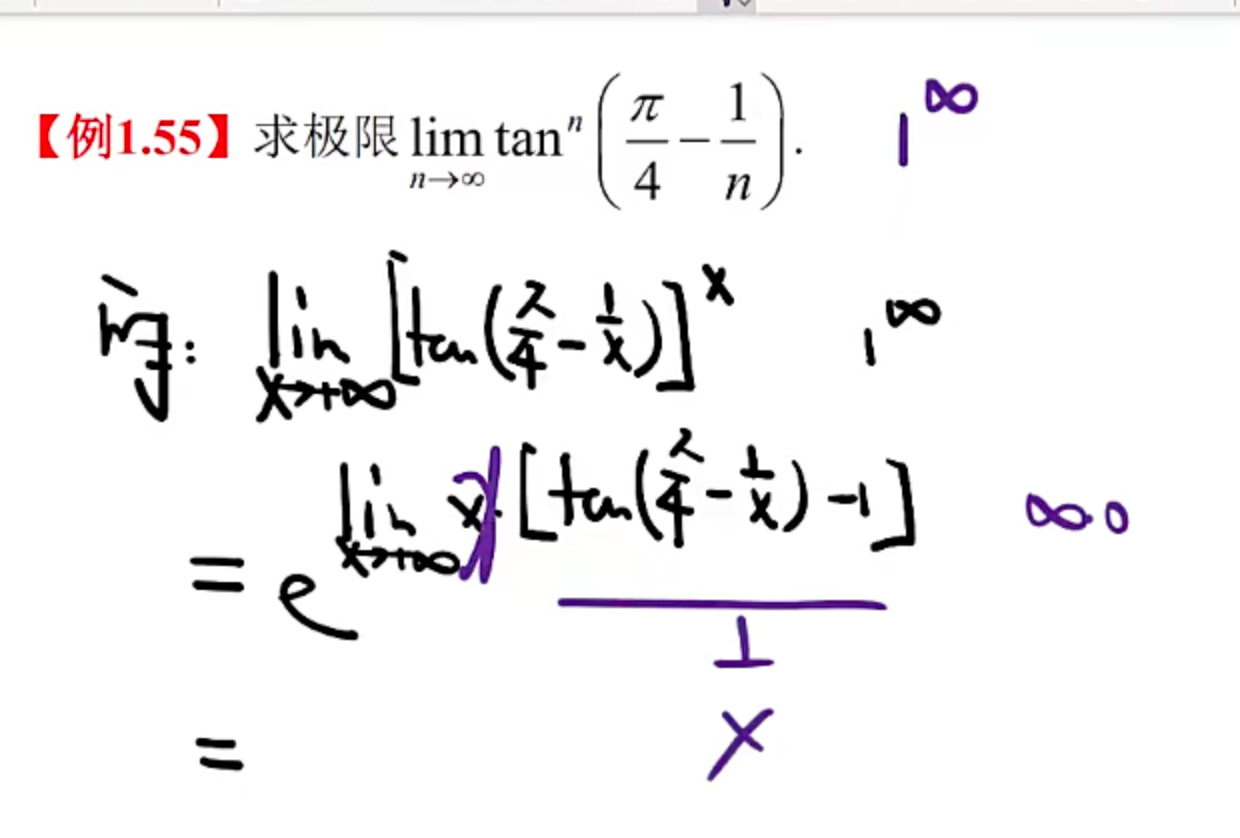 【例1.55】求极限 lim_{n→∞} tan^n (π/4 − 1/n). 1^∞
lim_{x→+∞} [tan(π/4 − 1/x)]^x 1^∞
= e^{lim_{x→+∞} x·[tan(π/4 − 1/x) − 1]} ∞·0
1
x
=